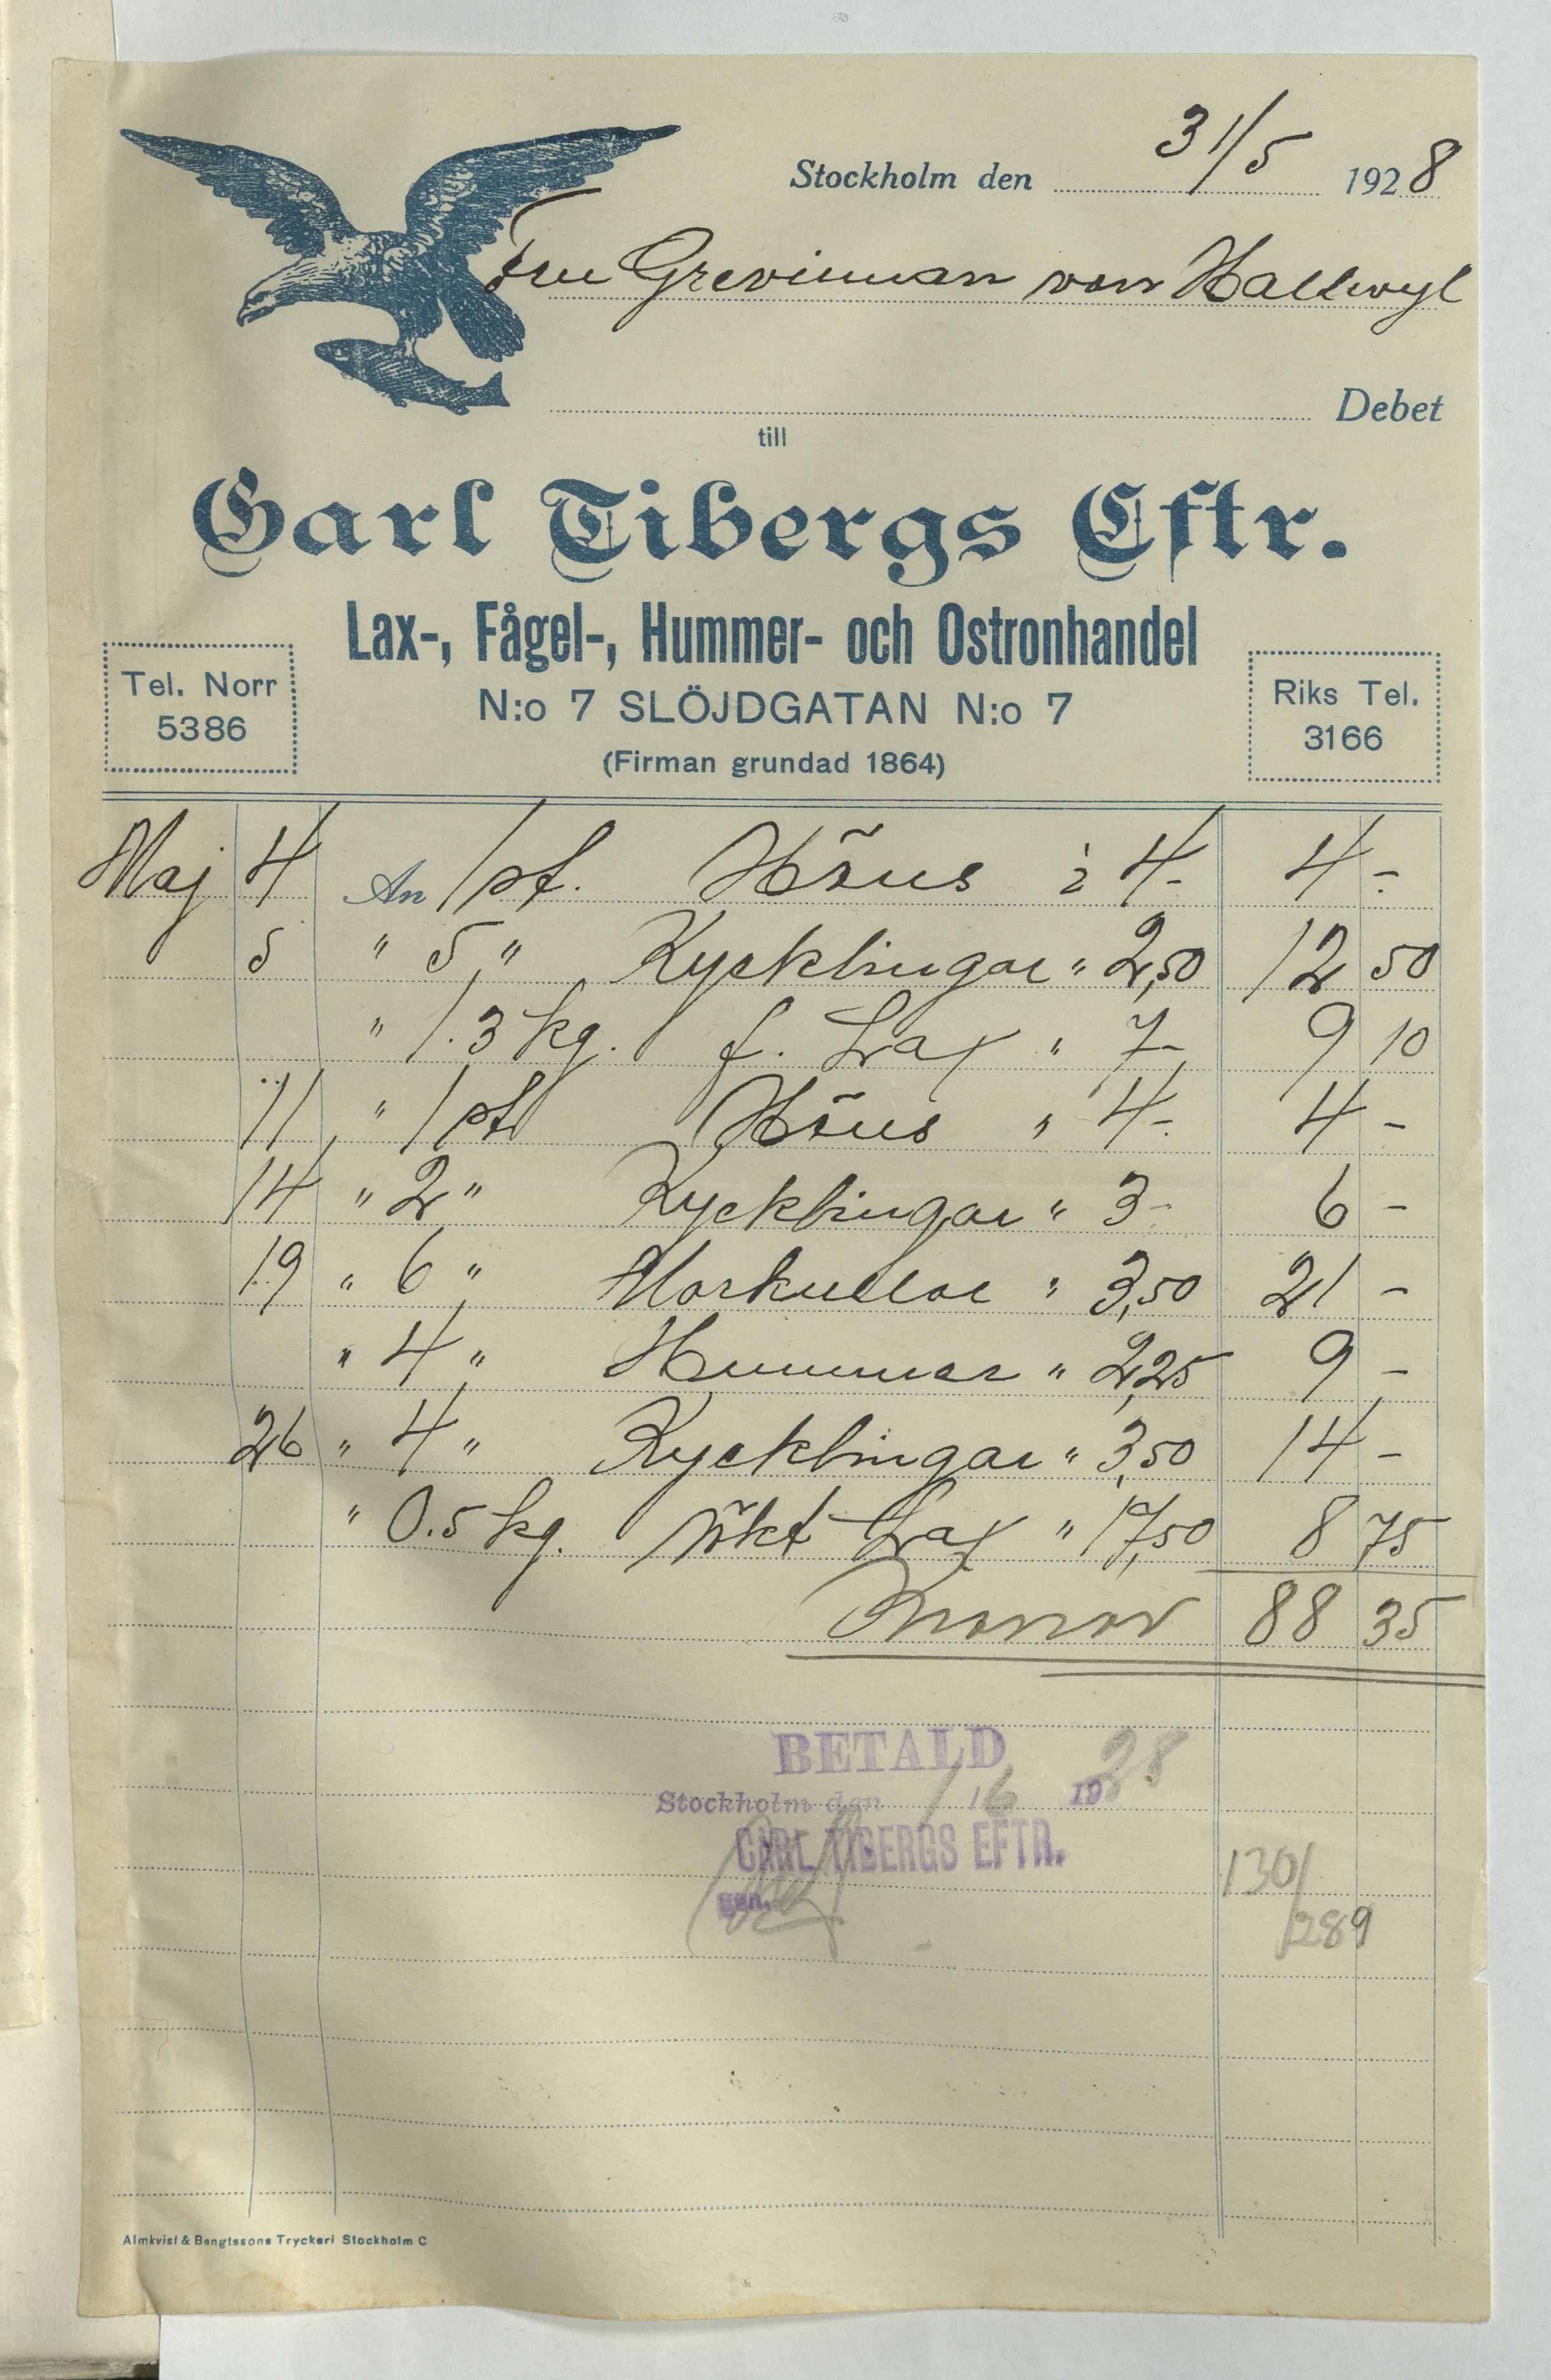 Stockholm den 31/5 1928
Fru Grevinnan von Hallwyl
Debet
till
Carl Tibergs Eftr.
Lax-, Fågel-, Hummer- och Ostronhandel
Tel. Norr 5386
N:o 7 SLÖJDGATAN N:o 7
Riks Tel. 3166
(Firman grundad 1864)
Maj 4 An 1 st. Höns à 4- 4 -
5 " 5 " Kycklingar " 2,50 12 50
" 1.3 kg. f. Lax " 7- 9 10
11 " 1 st Höns " 4- 4 -
14 " 2 " Kycklingar " 3- 6 -
19 " 6 " Morkullor " 3,50 21 -
" 4 " Hummer " 2,25 9 -
26 " 4 " Kycklingar " 3,50 14 -
" 0.5 kg. rökt Lax " 17,50 8 75
Kronor 88 35
BETALD
Stockholm den 1/6 1928
CARL TIBERGS EFTR.
gen.
130/
289
Almkvist & Bengtssons Tryckeri Stockholm C